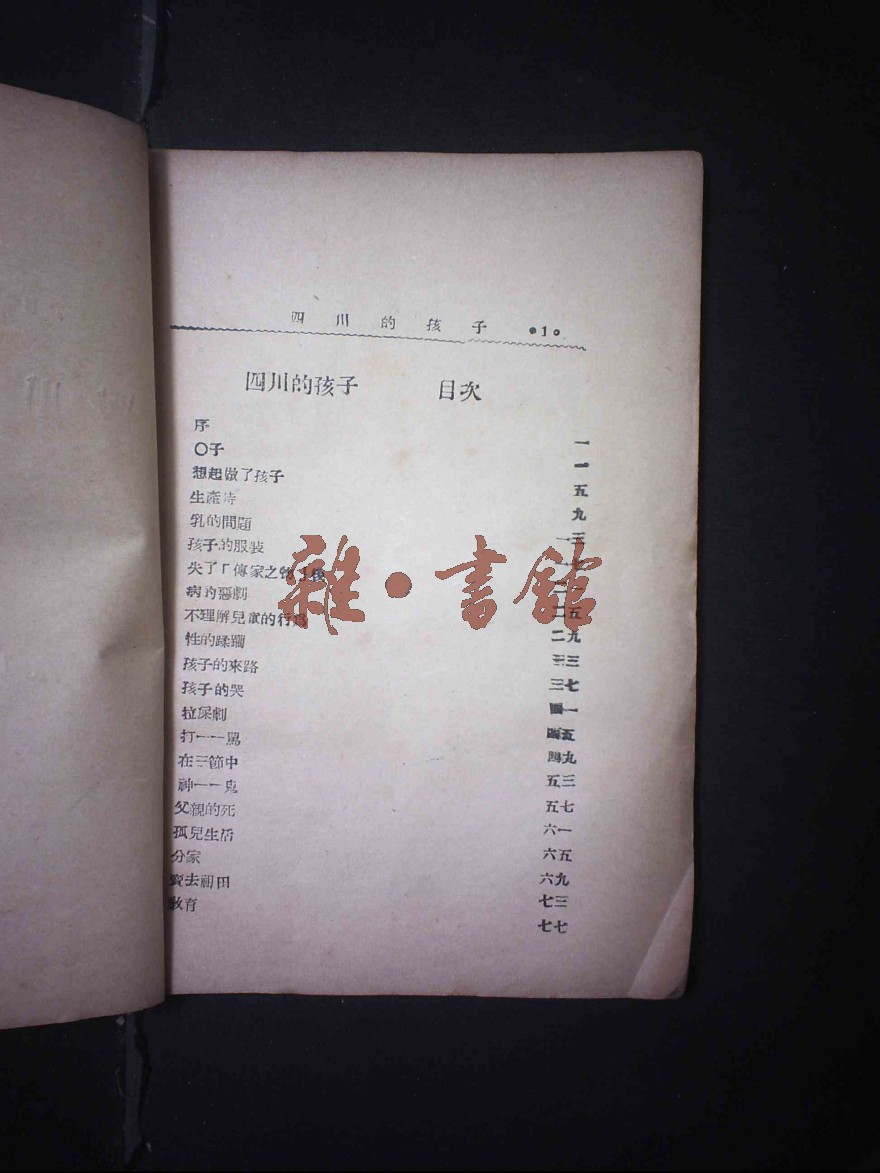 四川的孩子 •1。
四川的孩子 目次
序 一
〇子 一
想起做了孩子 五
生產時 九
乳的問題 一三
孩子的服裝
失了「傳家之物」後
病的惡劇 二五
不理解兒童的行爲 二九
性的蹂躪 三三
孩子的來路 三七
孩子的哭 四一
拉屎劇 四五
打——罵 四九
在三節中 五三
神——鬼 五七
父親的死 六一
孤兒生活 六五
分家 六九
賣去祖田 七三
教育 七七
雜•書館